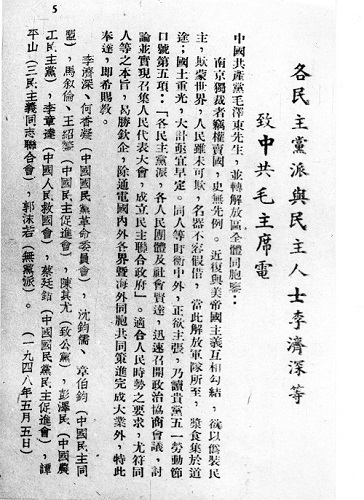 各民主黨派與民主人士李濟深等
致中共毛主席電
中國共產黨毛澤東先生，並轉解放區全體同胞鑒：
南京獨裁者竊權賣國，史無先例。近復與美帝國主義互相勾結，欲以僞裝民
主，欺蒙世界，人民雖未可欺，名器不容假借，當此解放軍隊所至，漿食集於道
途；國土重光，大計亟宜早定。同人等盱衡中外，正欲主張，乃讀貴黨五一勞動節
口號第五項：「各民主黨派、各人民團體及社會賢達，迅速召開政治協商會議，討
論並實現召集人民代表大會，成立民主聯合政府」。適合人民時勢之要求，尤符同
人等之本旨，曷勝欽企，除通電國內外各界暨海外同胞共同策進完成大業外，特此
奉達，即希賜教。
李濟深、何香凝（中國國民黨革命委員會），沈鈞儒、章伯鈞（中國民主同
盟），馬叙倫、王紹鏊（中國民主促進會），陳其尤（致公黨），彭澤民（中國農
工民主黨），李章達（中國人民救國會），蔡廷鍇（中國國民黨民主促進會），譚
平山（三民主義同志聯合會），郭沫若（無黨派）。（一九四八年五月五日）
5